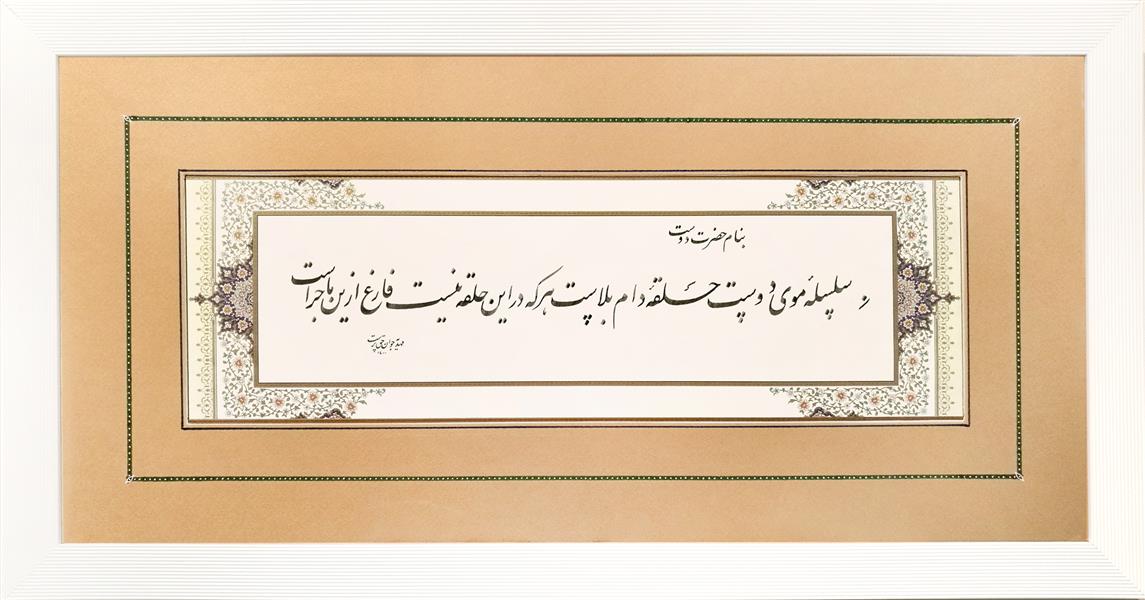 بنام حضرت دوست
سلسلهٔ موی دوست حلقهٔ دام بلاست هر که در این حلقه نیست فارغ ازین ماجراست